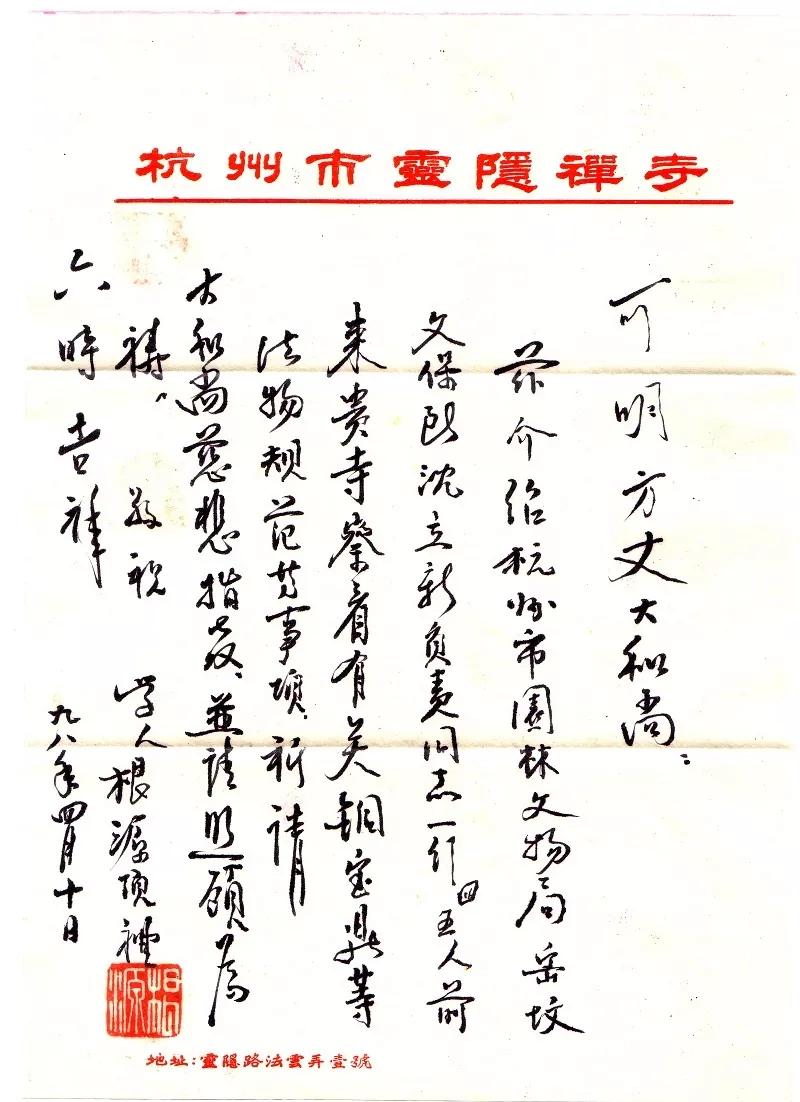 杭州市靈隱禪寺
可明方丈大和尚：
兹介绍杭州市園林文物局岳坟
文保所沈立新负责同志一行四五人前
来贵寺察看有关铜宝鼎等
法物规范等事項、祈請
大和尚慈悲指教、並請照顾为
禱、敬祝
六時吉祥
学人根源顶禮
九八年四月十日
根源
地址：靈隱路法雲弄壹號